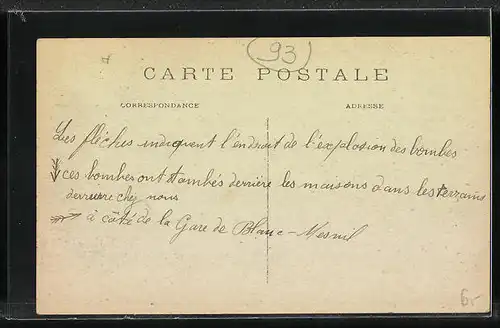 93
CARTE POSTALE
CORRESPONDANCE ADRESSE
Les flêches indiquent l'endroit de l'explosion des bombes
ces bombes ont tombés derrière les maisons dans les terrains
derriere chez nous
à côté de la Gare de Blanc-Mesnil
6,-